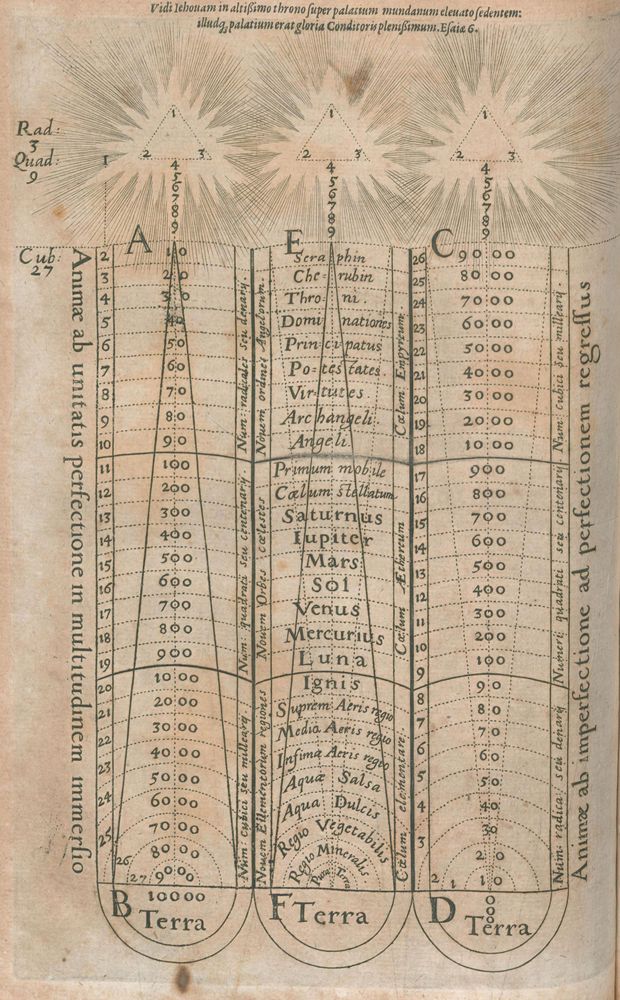 Vidi Iehouam in altißimo throno super palatium mundanum eleuato sedentem:
illudq3 palatium erat gloria Conditoris plenißimum. Esaiæ 6.
Rad:
3
Quad:
9
Cub:
27
1
1
2 3
4
5
6
7
8
9
1
2 3
4
5
6
7
8
9
1
2 3
4
5
6
7
8
9
Animæ ab unitatis perfectione in multitudinem immersio
A
2 10
3 20
4 30
5 40
6 50
7 60
8 70
9 80
10 90
11 100
12 200
13 300
14 400
15 500
16 600
17 700
18 800
19 900
20 1000
21 2000
22 3000
23 4000
24 5000
6000
25 7000
26 8000
27 9000
B
10000
Terra
Num: radicales seu denarij.
Num: quadrati seu centenarij.
Num: cubici seu millearij.
E
Nouem ordines Angelorum.
Nouem Orbes Cœlestes
Nouem Ellementorum regiones
Seraphin
Che-rubin
Throni.
Dominationes
Prin-ci-patus
Po-tes-tates
Vir-tutes
Archangeli.
Angeli
Primum mobile
Cœlum stellatum
Saturnus
Iupiter
Mars
Sol
Venus
Mercurius
Luna
Ignis
Suprem Aeris regio
Media Aeris regio
Infima Aeris regio
Aquæ Salsa
Aqua Dulcis
Regio Vegetabilis
Regio Mineralis
Pura Terra
F Terra
Cœlum Empyreum.
Cœlum Æthereum
Cœlum elementare.
C
26 9000
25 8000
24 7000
23 6000
22 5000
21 4000
20 3000
19 2000
18 1000
17 900
16 800
15 700
14 600
13 500
12 400
11 300
10 200
9 100
8 90
7 80
6 70
5 60
50
4 40
3 30
20
2 1 10
D
0
0
0
Terra
Num: cubici seu millearij.
Numeri quadrati seu centenarij
Num: radica: seu denarij
Animæ ab imperfectione ad perfectionem regressus